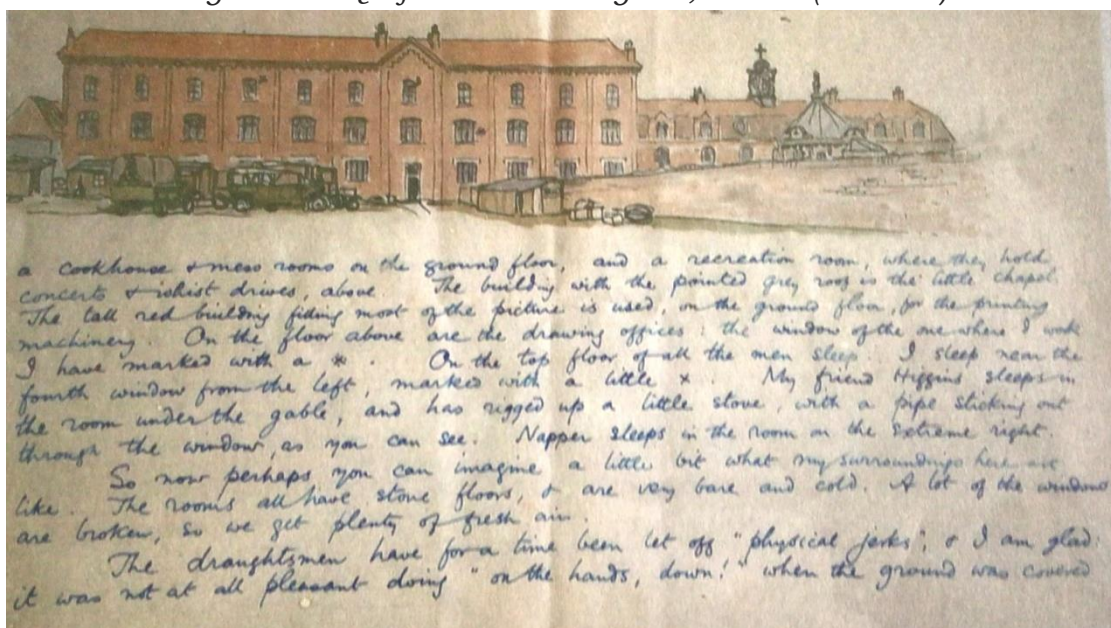 a cookhouse & mess rooms on the ground floor, and a recreation room, where they hold
concerts & whist drives, above. The building with the pointed grey roof is the little chapel.
The tall red building filling most of the picture is used, on the ground floor, for the printing
machinery. On the floor above are the drawing offices: the window of the one where I work
I have marked with a *. On the top floor of all the men sleep. I sleep near the
fourth window from the left, marked with a little x. My friend Higgins sleeps in
the room under the gable, and has rigged up a little stove, with a pipe sticking out
through the window, as you can see. Napper sleeps in the room on the extreme right.
So now perhaps you can imagine a little bit what my surroundings here are
like. The rooms all have stone floors, & are very bare and cold. A lot of the windows
are broken, so we get plenty of fresh air.
The draughtsmen have for a time been let off "physical jerks", & I am glad:
it was not at all pleasant doing "on the hands, down!" when the ground was covered